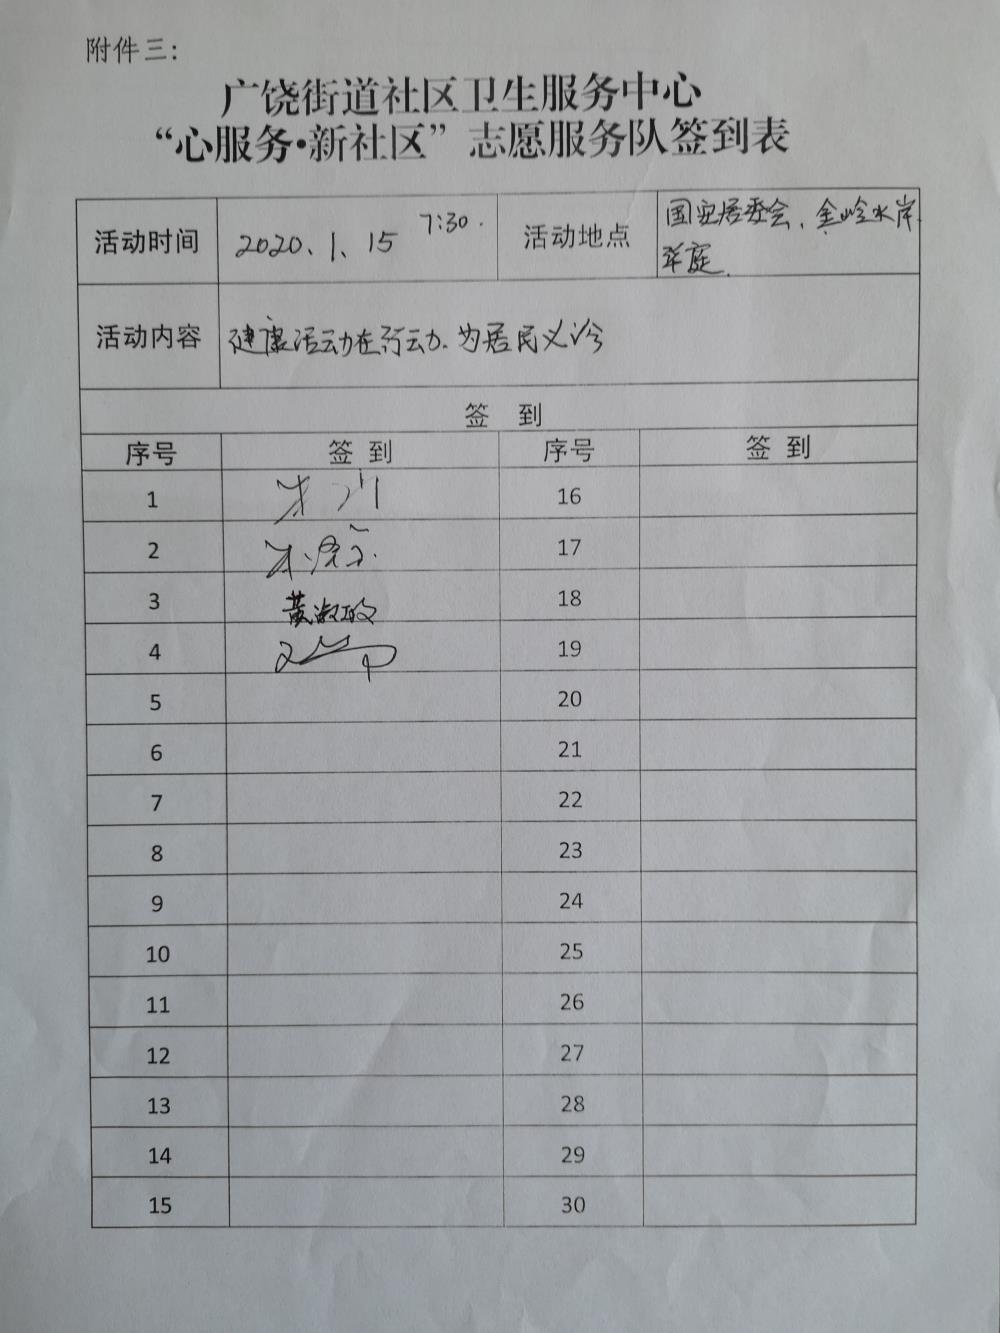 附件三:
广饶街道社区卫生服务中心
“心服务•新社区”志愿服务队签到表
活动时间 2020.1.15 7:30. 活动地点 国安居委会、金岭水岸
华庭.
活动内容 健康活动在行动.为居民义诊
签 到
序号 签 到 序号 签 到
1 16
2 17
3 黄淑玫 18
4 19
5 20
6 21
7 22
8 23
9 24
10 25
11 26
12 27
13 28
14 29
15 30